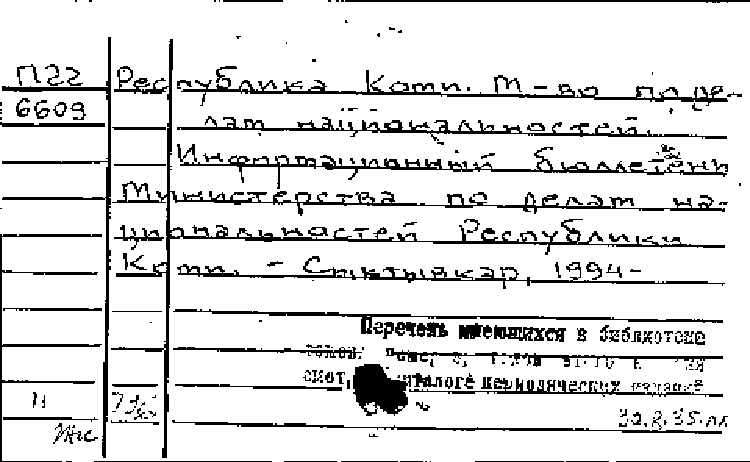 П22 Республика Коми. М-во по де-
6609 лам национальностей.
Информационный бюллетень
Министерства по делам на-
циональностей Республики
Коми. - Сыктывкар, 1994-
Перечень имеющихся в библиотеке
смот. каталоге периодических изданий